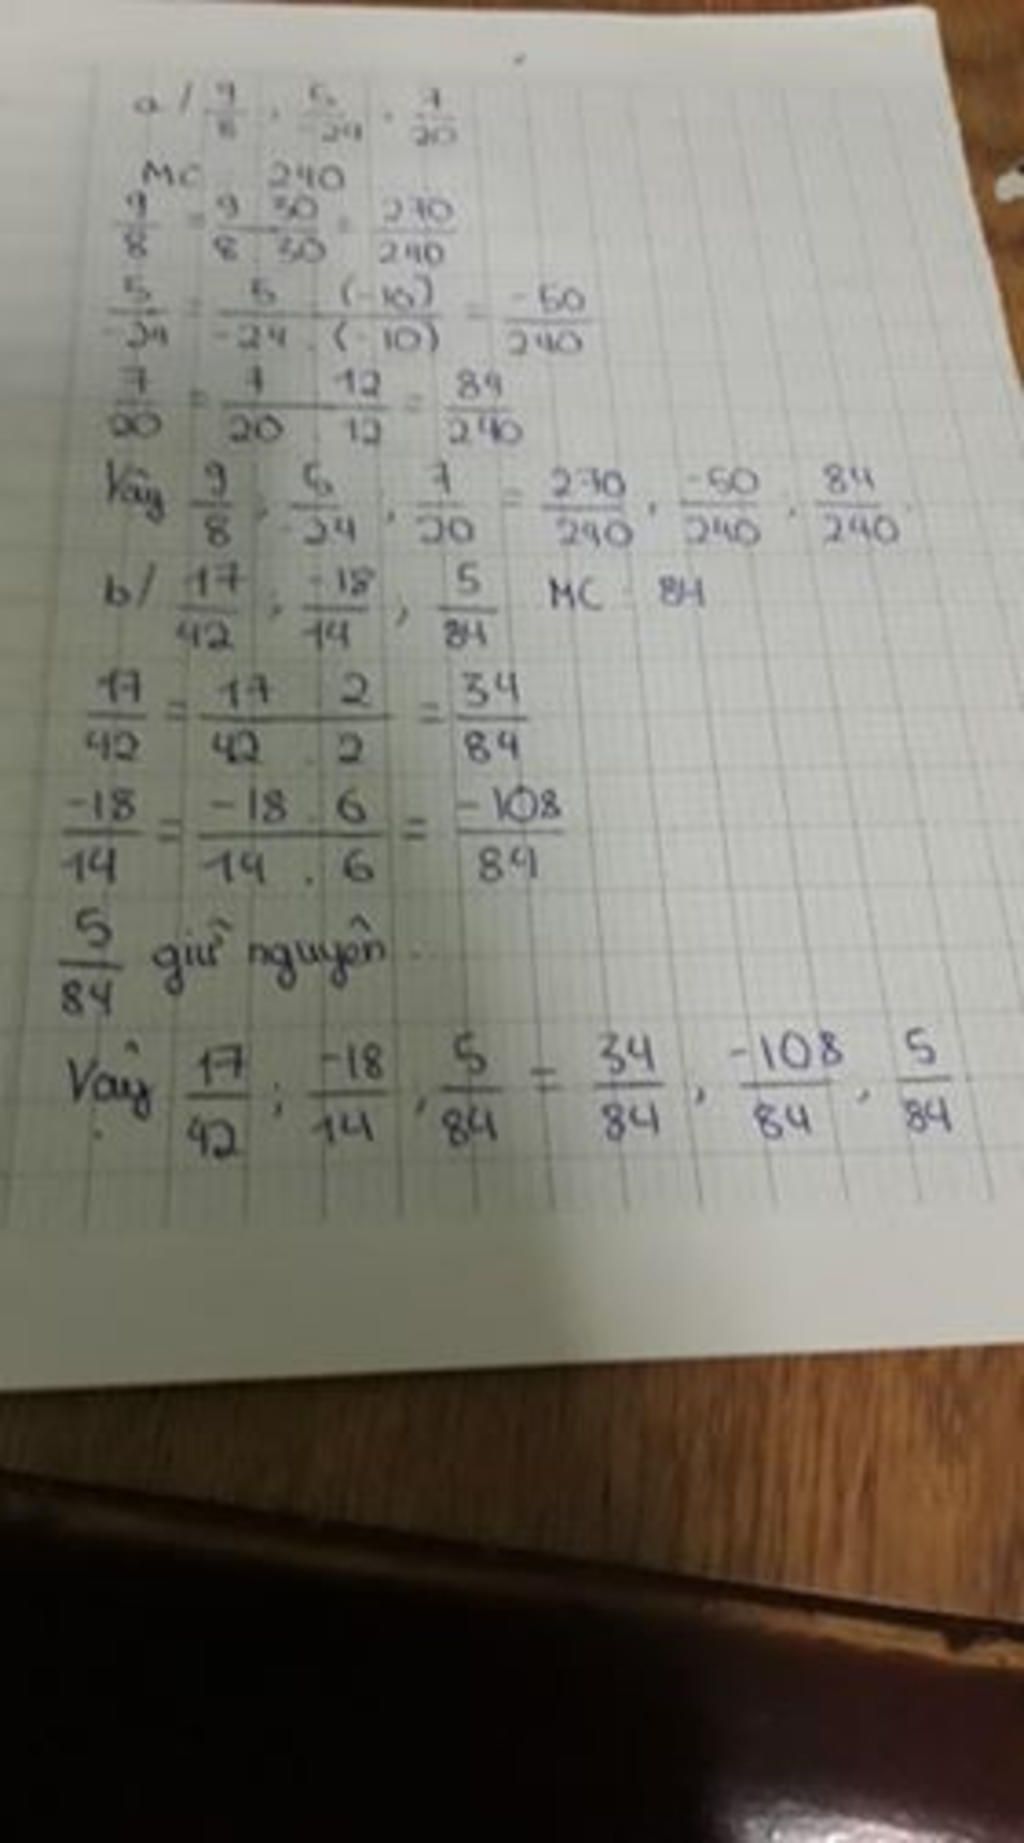 a/ 9/8 , 5/-24 , 7/20
MC 240
9/8 = 9 30/8 . 30 = 270/240
5/-24 = 5 . (-10)/-24 . (-10) = -50/240
7/20 = 7 12/20 12 = 84/240
Vậy 9/8 , 5/-24 , 7/20 = 270/240 , -50/240 , 84/240
b/ 17/42 ; -18/14 , 5/84 MC : 84
17/42 = 17 2/42 . 2 = 34/84
-18/14 = -18 . 6/14 . 6 = -108/84
5/84 giữ nguyên
Vậy 17/42 ; -18/14 , 5/84 = 34/84 , -108/84 , 5/84